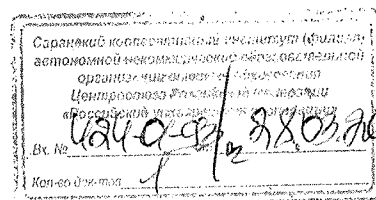 Саранский кооперативный институт (филиал)
автономной некоммерческой образовательной
организации высшего образования
Центросоюза Российской Федерации
«Российский университет кооперации»
Вх. № 28.03.20
Кол-во док-тов 1